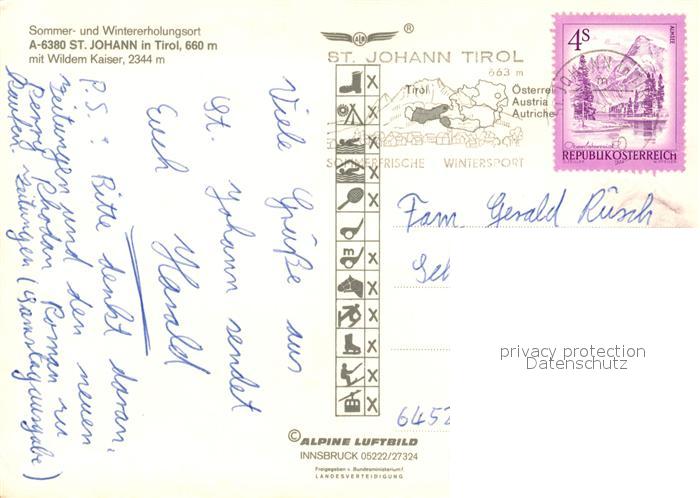 Sommer- und Wintererholungsort
A-6380 ST. JOHANN in Tirol, 660 m
mit Wildem Kaiser, 2344 m
Viele Grüße aus
St. Johann sendet
Euch
Harald
P.S.: Bitte denkt daran,
Zeitungen und den neuen
Perry Rhodan Roman zu
kaufen. Zeitungen (Samstagausgabe)
®
ST. JOHANN TIROL
663 m
Tirol
Österrei
Austria
Autriche
SOMMERFRISCHE WINTERSPORT
4S
ALMSEE
REPUBLIK ÖSTERREICH
Fam. Gerald Rüsch
6452
privacy protection
Datenschutz
© ALPINE LUFTBILD
INNSBRUCK 05222/27324
Freigegeben v. Bundesministerium f.
LANDESVERTEIDIGUNG